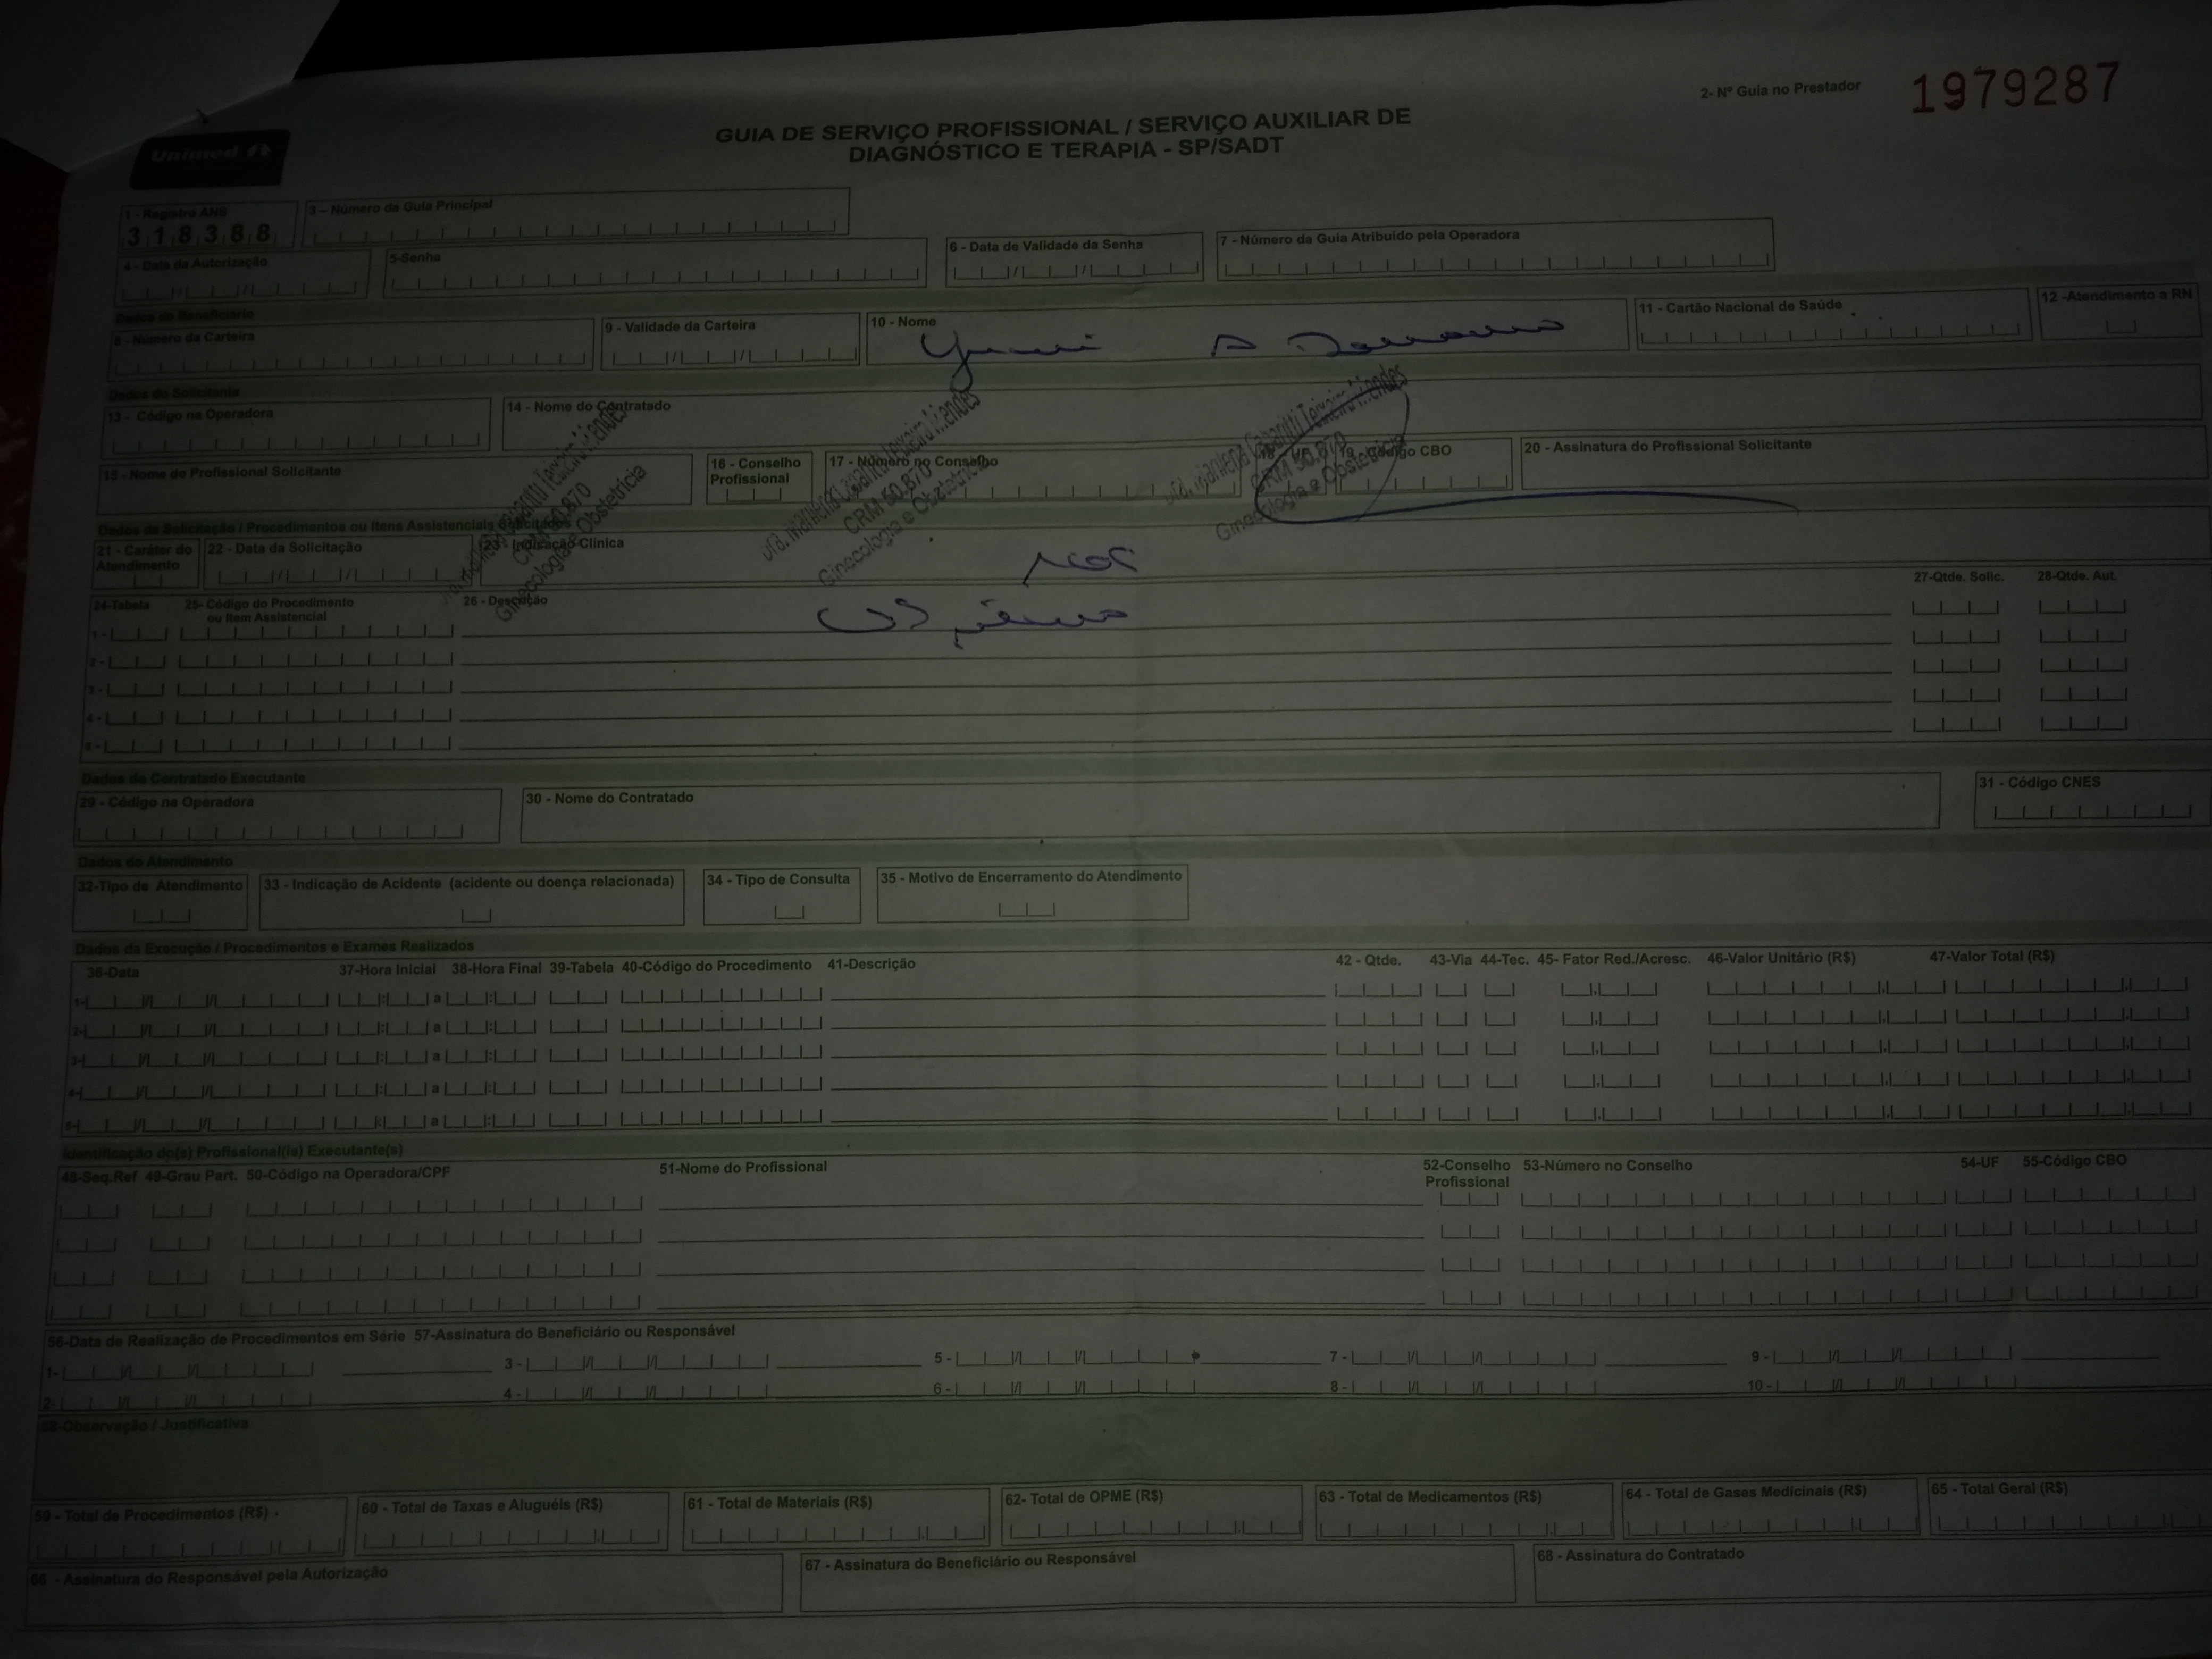 2- Nº Guia no Prestador 1979287
Unimed
GUIA DE SERVIÇO PROFISSIONAL / SERVIÇO AUXILIAR DE
DIAGNÓSTICO E TERAPIA - SP/SADT
1 - Registro ANS 3 - Número da Guia Principal
318388
4 - Data da Autorização 5-Senha 6 - Data de Validade da Senha 7 - Número da Guia Atribuído pela Operadora
Dados do Beneficiário
8 - Número da Carteira 9 - Validade da Carteira 10 - Nome 11 - Cartão Nacional de Saúde 12 -Atendimento a RN
Dados do Solicitante
13 - Código na Operadora 14 - Nome do Contratado
15 - Nome do Profissional Solicitante 16 - Conselho Profissional 17 - Número no Conselho 18 - UF 19 - Código CBO 20 - Assinatura do Profissional Solicitante
CRM 50.870
Ginecologia e Obstetrícia
CRM 50.870
Ginecologia e Obstetrícia
CRM 50.870
Ginecologia e Obstetrícia
Dados da Solicitação / Procedimentos ou Itens Assistenciais Solicitados
21 - Caráter do Atendimento 22 - Data da Solicitação 23 - Indicação Clínica
24-Tabela 25- Código do Procedimento ou Item Assistencial 26 - Descrição 27-Qtde. Solic. 28-Qtde. Aut.
1 - US
2 -
3 -
4 -
5 -
Dados do Contratado Executante
29 - Código na Operadora 30 - Nome do Contratado 31 - Código CNES
Dados do Atendimento
32-Tipo de Atendimento 33 - Indicação de Acidente (acidente ou doença relacionada) 34 - Tipo de Consulta 35 - Motivo de Encerramento do Atendimento
Dados da Execução / Procedimentos e Exames Realizados
36-Data 37-Hora Inicial 38-Hora Final 39-Tabela 40-Código do Procedimento 41-Descrição 42 - Qtde. 43-Via 44-Tec. 45- Fator Red./Acresc. 46-Valor Unitário (R$) 47-Valor Total (R$)
1- a
2- a
3- a
4- a
5- a
Identificação do(s) Profissional(is) Executante(s)
48-Seq.Ref 49-Grau Part. 50-Código na Operadora/CPF 51-Nome do Profissional 52-Conselho Profissional 53-Número no Conselho 54-UF 55-Código CBO
56-Data de Realização de Procedimentos em Série 57-Assinatura do Beneficiário ou Responsável
1- 3 - 5 - 7 - 9 -
2- 4 - 6 - 8 - 10 -
58-Observação / Justificativa
59 - Total de Procedimentos (R$) 60 - Total de Taxas e Aluguéis (R$) 61 - Total de Materiais (R$) 62- Total de OPME (R$) 63 - Total de Medicamentos (R$) 64 - Total de Gases Medicinais (R$) 65 - Total Geral (R$)
66 - Assinatura do Responsável pela Autorização 67 - Assinatura do Beneficiário ou Responsável 68 - Assinatura do Contratado